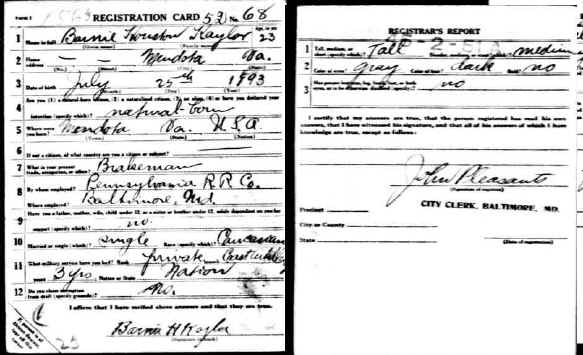 Form 1 REGISTRATION CARD 53 No. 68
1 Name in full Barnie Kaylor 23
2 Home address Mendota Va.
3 Date of birth July 25th 1893
4 Are you (1) a natural-born citizen, (2) a naturalized citizen, (3) an alien, (4) or have you declared your
intention (specify which)? natural-born
5 Where were you born? Mendota Va. U.S.A.
6 If not a citizen, of what country are you a citizen or subject?
7 What is your present trade, occupation, or office? Brakeman
8 By whom employed? Pennsylvania R R Co.
Where employed? Baltimore, Md.
9 Have you a father, mother, wife, child under 12, or a sister or brother under 12, solely dependent on you for
support (specify which)? no
10 Married or single (which)? single Race (specify which)? Caucasian
11 What military service have you had? Rank private Branch
years 3 yrs Nation or State Nation
12 Do you claim exemption from draft (specify grounds)? no.
I affirm that I have verified above answers and that they are true.
Barnie H Kaylor
REGISTRAR'S REPORT
1 Tall, medium, or short (specify which)? Tall Slender, medium, or stout (which)? medium
2 Color of eyes? gray Color of hair? dark Bald? no
3 Has person lost arm, leg, hand, foot, or both eyes, or is he otherwise disabled (specify)? no
I certify that my answers are true, that the person registered has read his own
answers, that I have witnessed his signature, and that all of his answers of which I have
knowledge are true, except as follows:
John Pleasants
(Signature of registrar)
Precinct CITY CLERK, BALTIMORE, MD.
City or County
State (Date of registration)